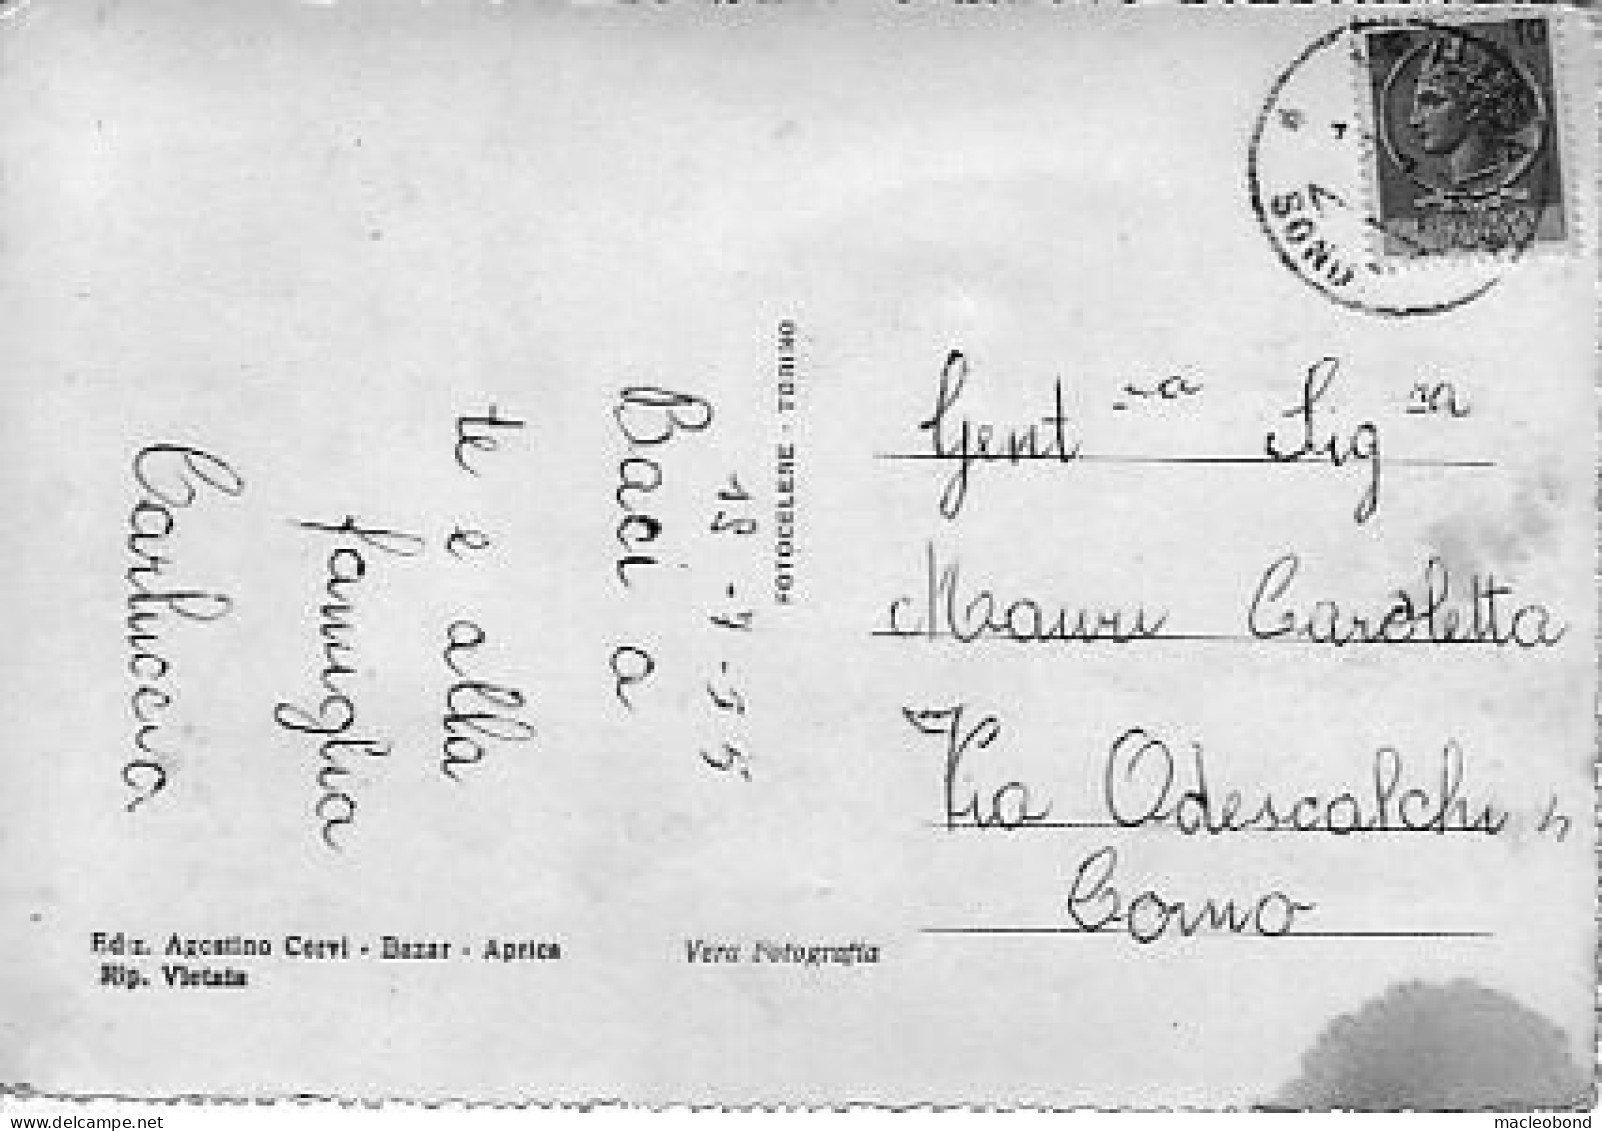 18-7-55
Baci a
te e alla
famiglia
Carluccia
FOTOCELERE - TORINO
Ediz. Agostino Cervi - Bazar - Aprica
Rip. Vietata
Vera Fotografia
10
SOND
Gent ma Sig ra
Mauri Caroletta
Via Odescalchi
Como
macleobond